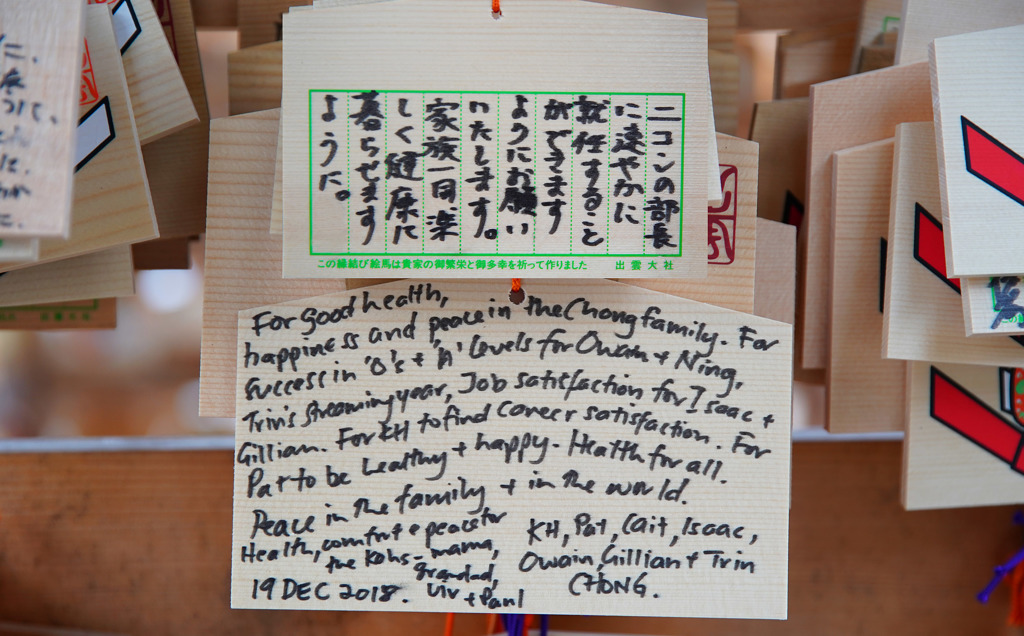 ニコンの部長
に速やかに
就任すること
ができます
ようにお願い
いたします。
家族一同楽
しく健康に
暮らせます
ように。
この縁結び絵馬は貴家の御繁栄と御多幸を祈って作りました 出雲大社
For good health,
happiness and peace in the Chong family. For
success in 'O's + 'A' Levels for Owain + Ning,
Trin's streaming year, Job satisfaction for Isaac +
Gillian. For KH to find career satisfaction. For
Pat to be healthy + happy. Health for all.
Peace in the family + in the world.
Health, comfort + peace for
the Kohs - mama,
grandad,
Viv + Paul
19 DEC 2018.
KH, Pat, Cait, Isaac,
Owain, Gillian + Trin
CHONG.